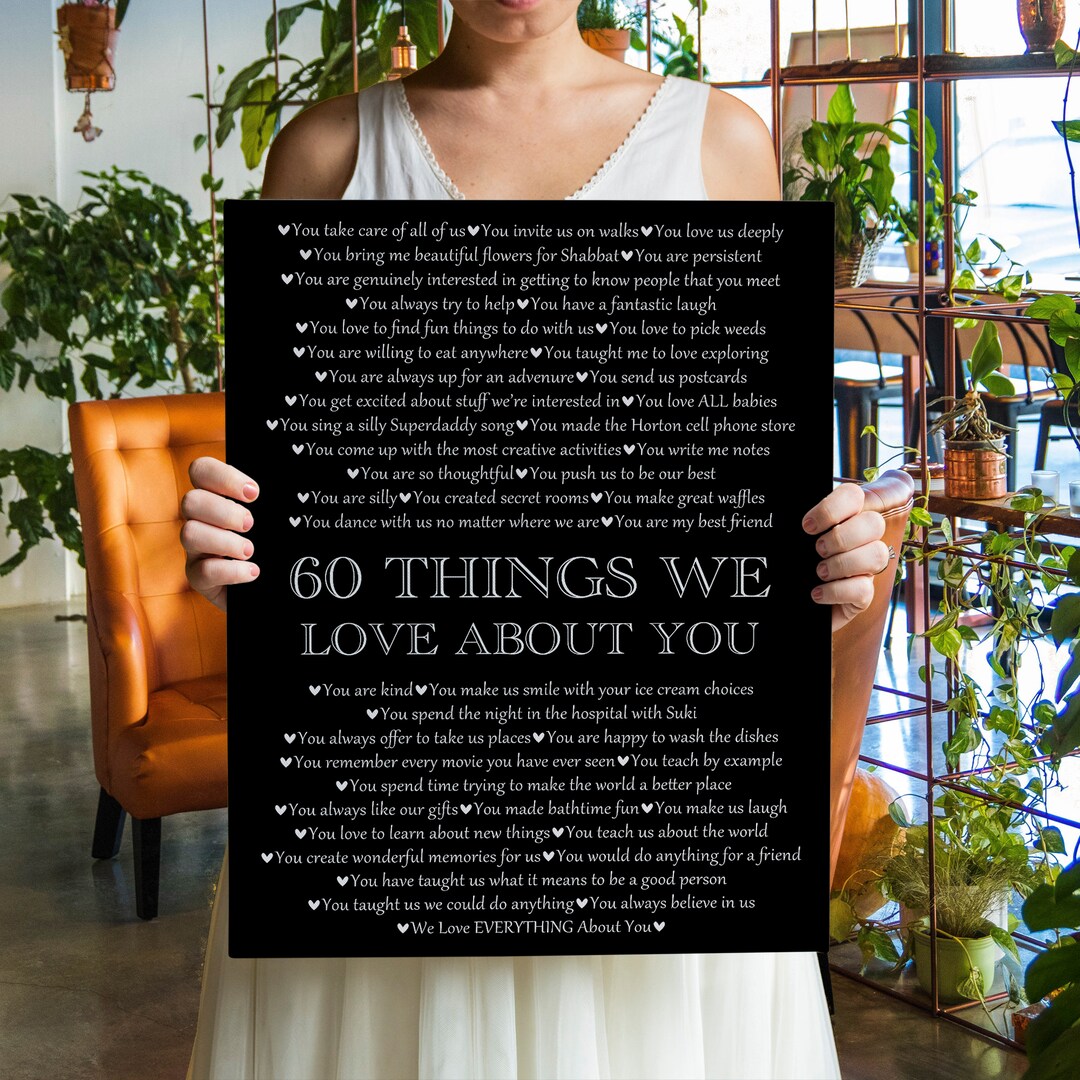 ♥You take care of all of us♥You invite us on walks♥You love us deeply
♥You bring me beautiful flowers for Shabbat♥You are persistent
♥You are genuinely interested in getting to know people that you meet
♥You always try to help♥You have a fantastic laugh
♥You love to find fun things to do with us♥You love to pick weeds
♥You are willing to eat anywhere♥You taught me to love exploring
♥You are always up for an advenure♥You send us postcards
♥You get excited about stuff we're interested in♥You love ALL babies
♥You sing a silly Superdaddy song♥You made the Horton cell phone store
♥You come up with the most creative activities♥You write me notes
♥You are so thoughtful♥You push us to be our best
♥You are silly♥You created secret rooms♥You make great waffles
♥You dance with us no matter where we are♥You are my best friend
60 THINGS WE
LOVE ABOUT YOU
♥You are kind♥You make us smile with your ice cream choices
♥You spend the night in the hospital with Suki
♥You always offer to take us places♥You are happy to wash the dishes
♥You remember every movie you have ever seen♥You teach by example
♥You spend time trying to make the world a better place
♥You always like our gifts♥You made bathtime fun♥You make us laugh
♥You love to learn about new things♥You teach us about the world
♥You create wonderful memories for us♥You would do anything for a friend
♥You have taught us what it means to be a good person
♥You taught us we could do anything♥You always believe in us
♥We Love EVERYTHING About You♥